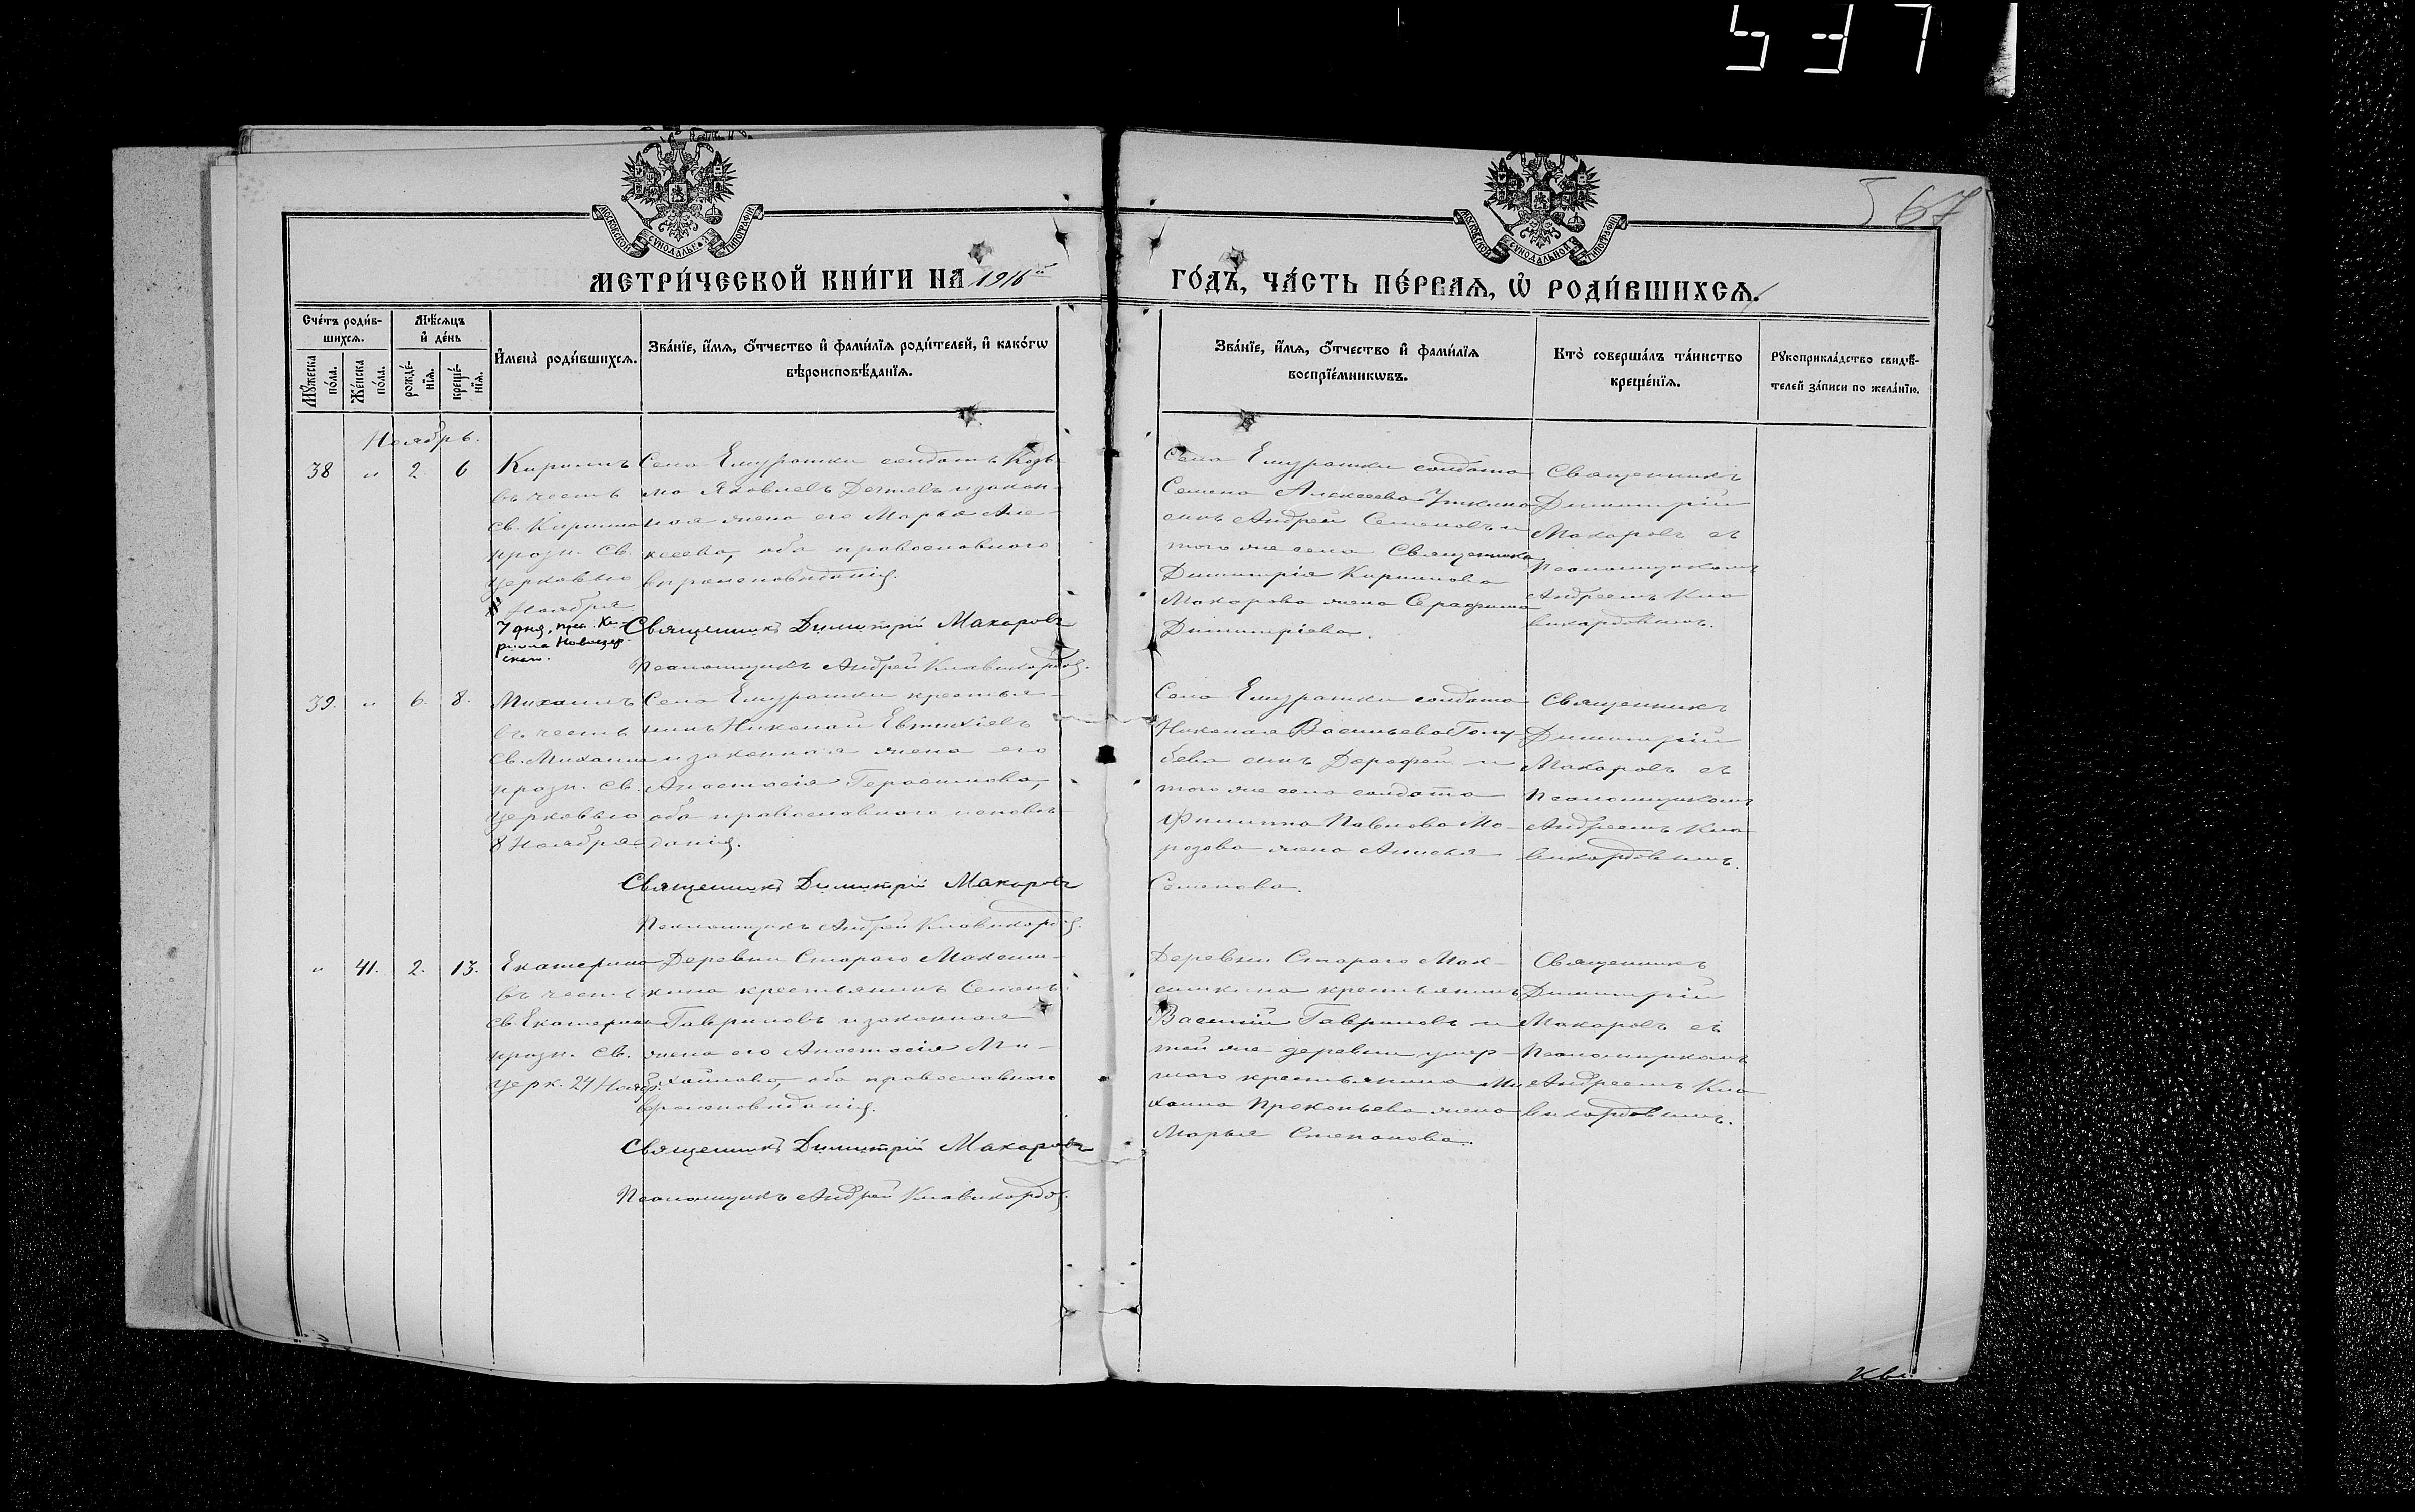 537
567
МОСКОВСКОЙ СѴНОДАЛЬНОЙ ТИПОГРАФІИ
МОСКОВСКОЙ СѴНОДАЛЬНОЙ ТИПОГРАФІИ
МЕТРИ́ЧЕСКОЙ КНИ́ГИ НА 1916й ГО́ДЪ, ЧА́СТЬ ПЕ́РВАЯ, Ѽ РОДИ́ВШИХСЯ.
Сче́тъ роди́в-
шихся.
Му́жеска
по́ла.
Же́нска
по́ла.
Мѣ́сяцъ
и҆ де́нь
рожде́-
нїя.
креще́-
нїя.
И҆мена̀ роди́вшихся.
Зва́нїе, и҆́мя, ѻ҆́тчество и҆ фами́лїя роди́телей, и҆ како́гѡ
вѣроисповѣ́данїя.
Зва́нїе, и҆́мя, ѻ҆́тчество и҆ фами́лїя
воспрїе́мникѡвъ.
Кто̀ соверша́лъ та́инство
креще́нїя.
Рꙋкоприкла́дство свидѣ́-
телей за́писи по жела́нїю.
Ноябрь.
38 " 2. 6
Кириллъ
въ честь
св. Кирилла
празн. Св.
Церковью
Ноября
7 дня, преп. Ки-
рилла Новоезер-
скаго.
Села Емуратки солдатъ Козь-
ма Яковлевъ и закон-
ная жена его Марѳа Але-
ксеева, оба православнаго
вѣроисповѣданія.
Священникъ Димитрій Макаровъ
Псаломщикъ Андрей Клавикордовъ.
Села Емуратки солдата
Семена Алексеева Уткина
сынъ Андрей Семеновъ и
того же села Священника
Димитрія Кириллова
Макарова жена Серафима
Димитріева.
Священникъ
Димитрій
Макаровъ съ
Псаломщикомъ
Андреемъ Кла
викордовымъ.
39. " 6. 8.
Михаилъ
въ честь
св. Михаила
празн. Св.
Церковью
8 Ноября.
Села Емуратки крестья-
нинъ Николай Евтихіевъ
и законная жена его
Анастасія Герасимова,
оба православнаго исповѣ-
данія.
Священникъ Димитрій Макаровъ
Псаломщикъ Андрей Клавикордовъ.
Села Емуратки солдата
Николая Васильева Голу-
бева сынъ и
того же села солдата
Филиппа Павлова Мо-
розова жена
Семенова.
Священникъ
Димитрій
Макаровъ съ
Псаломщикомъ
Андреемъ Кла-
викордовымъ.
" 41. 2. 13.
Екатерина
въ честь
св. Екатерины
празн. Св.
Церк. 24 Нояб.
Деревни Стараго Максим-
кина крестьянинъ Семенъ
Гавриловъ и законная
жена его Анастасія Ми-
хайлова, оба православнаго
вѣроисповѣданія.
Священникъ Димитрій Макаровъ
Псаломщикъ Андрей Клавикордовъ.
Деревни Стараго Мак-
симкина крестьянинъ
Василій Гавриловъ и
той же деревни умер-
шаго крестьянина Ми
хаила Прокопьева жена
Марья Степанова.
Священникъ
Димитрій
Макаровъ съ
Псаломщикомъ
Андреемъ Кла
викордовымъ.